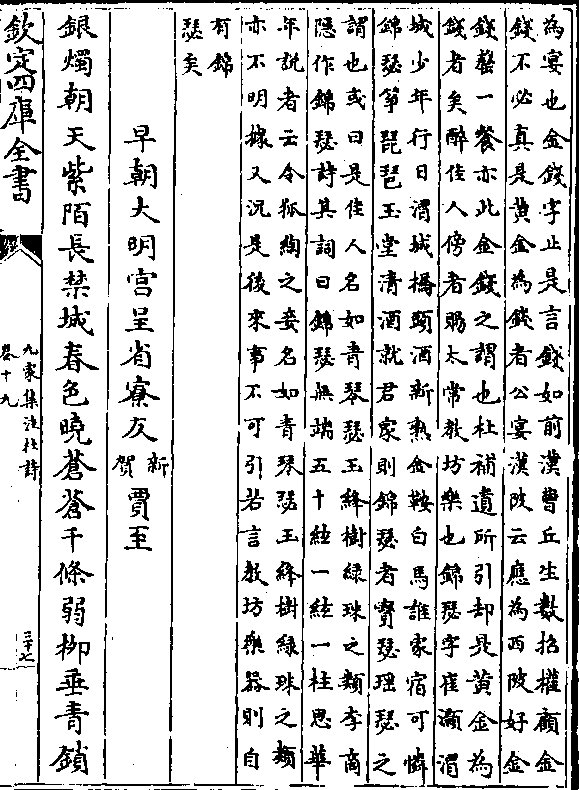 為宴也金錢字止是言錢如前漢曹丘生數招權顧金
錢不必真是黃金為錢者公宴渼陂云應為西陂好金
錢罄一餐亦此金錢之謂也杜補遺所引却是黃金為
錢者矣醉佳人傍者賜太常教坊樂也錦瑟字崔灝渭
城少年行曰渭城橋頭酒新熟金鞍白馬誰家宿可憐
錦瑟箏琵琶玉堂清酒就君家則錦瑟者寳瑟瑶瑟之
謂也或曰是佳人名如青琴瑟玉絳樹緑珠之類李商
隱作錦瑟詩其詞曰錦瑟無端五十絃一絃一柱思華
年説者云令狐綯之妾名如青琴瑟玉絳樹緑珠之類
亦不明據又况是後來事不可引若言教坊樂器則自
有錦
瑟矣
早朝大明宫呈省寮友新賀賈至
銀燭朝天紫陌長禁城春色曉蒼蒼千條弱栁垂青鎖
欽定四庫全書
九家集注杜詩
卷十九
三十七